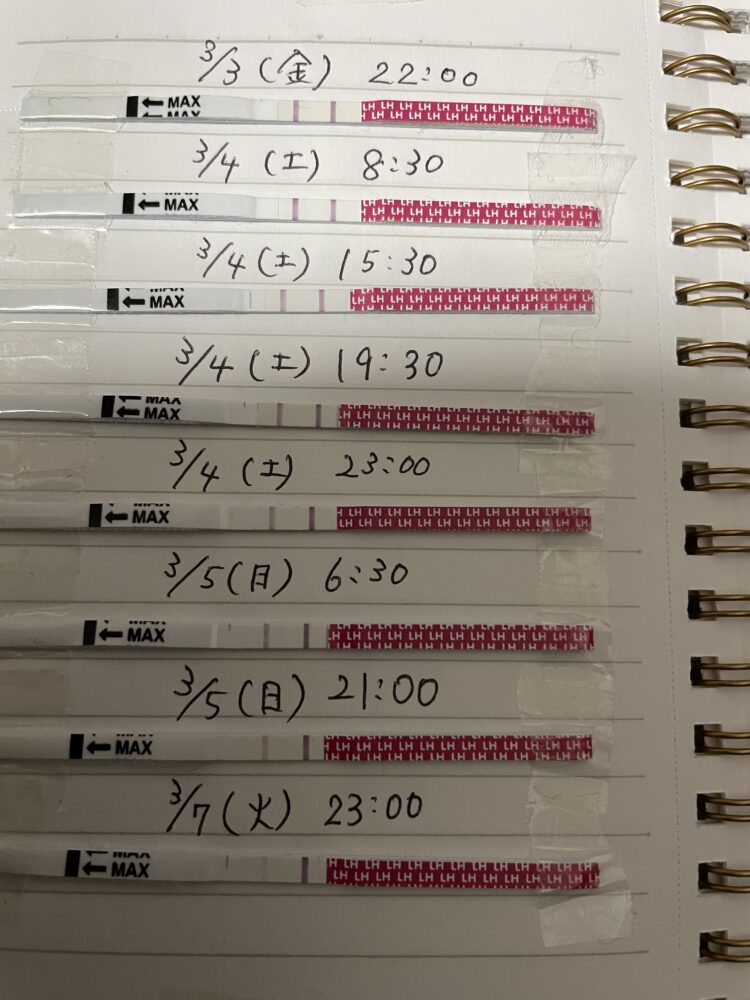 3/3(金) 22:00
← MAX LH LH LH LH LH LH LH LH LH LH LH
3/4(土) 8:30
← MAX LH LH LH LH LH LH LH LH LH LH LH
3/4(土) 15:30
← MAX LH LH LH LH LH LH LH LH LH LH LH
3/4(土) 19:30
← MAX LH LH LH LH LH LH LH LH LH LH LH
3/4(土) 23:00
← MAX LH LH LH LH LH LH LH LH LH LH LH
3/5(日) 6:30
← MAX LH LH LH LH LH LH LH LH LH LH LH
3/5(日) 21:00
← MAX LH LH LH LH LH LH LH LH LH LH LH
3/7(火) 23:00
← MAX LH LH LH LH LH LH LH LH LH LH LH